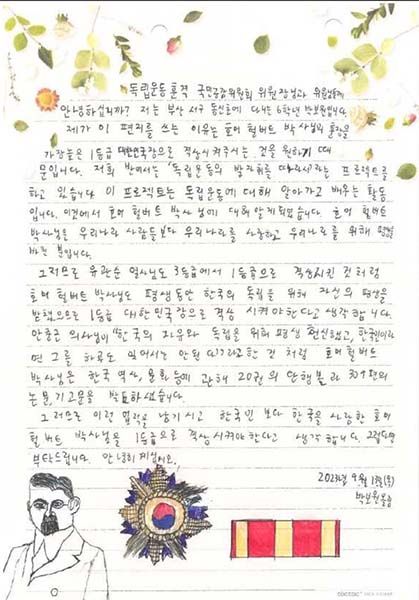 독립운동 훈격 국민공감위원회 위원장님과 위원님들께
안녕하십니까? 저는 부산 서구 동신초에 다니는 6학년 박보원입니다.
제가 이 편지를 쓰는 이유는 호머 헐버트 박사님의 훈장을
가장 높은 1등급 대한민국장으로 격상시켜주시는 것을 원하기 때
문입니다. 저희 반에서는 '독립운동의 발자취를 따라서'라는 프로젝트를
하고 있습니다 이 프로젝트는 독립운동에 대해 알아가고 배우는 활동
입니다. 이것에서 호머 헐버트 박사님에 대해 알게 되었습니다 호머 헐버트
박사님은 우리나라 사람들보다 우리나라를 사랑하고 우리나라를 위해 평생
바친 분입니다.
그러므로 유관순 열사님도 3등급에서 1등급으로 격상시킨 것처럼
호머 헐버트 박사님도 평생동안 한국의 독립을 위해 자신의 평생을
바쳤으므로 1등급 대한민국장으로 격상 시켜야한다고 생각합니다.
안중근 의사님이 "한국의 자유와 독립을 위해 평생 헌신했고, 한국인이라
면 그를 하루도 잊어서는 안된다"라고 한 것 처럼 호머 헐버트
박사님은 한국 역사, 문화 등에 관해 20권의 단행본과 304편의
논문, 기고문을 발표하셨습니다.
그러므로 이런 업적을 남기시고 한국인 보다 한국을 사랑한 호머
헐버트 박사님을 1등급으로 격상시켜야 한다고 생각합니다. 그럼 다시
부탁드립니다. 안녕히 계십시오.
2023년 9월 13일(수)
박보원 올림